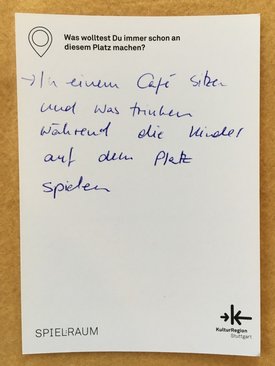 Was wolltest Du immer schon an
diesem Platz machen?
→ In einem Café sitzen
und was trinken
während die Kinder
auf dem Platz
spielen
SPIEL:RAUM
KulturRegion
Stuttgart